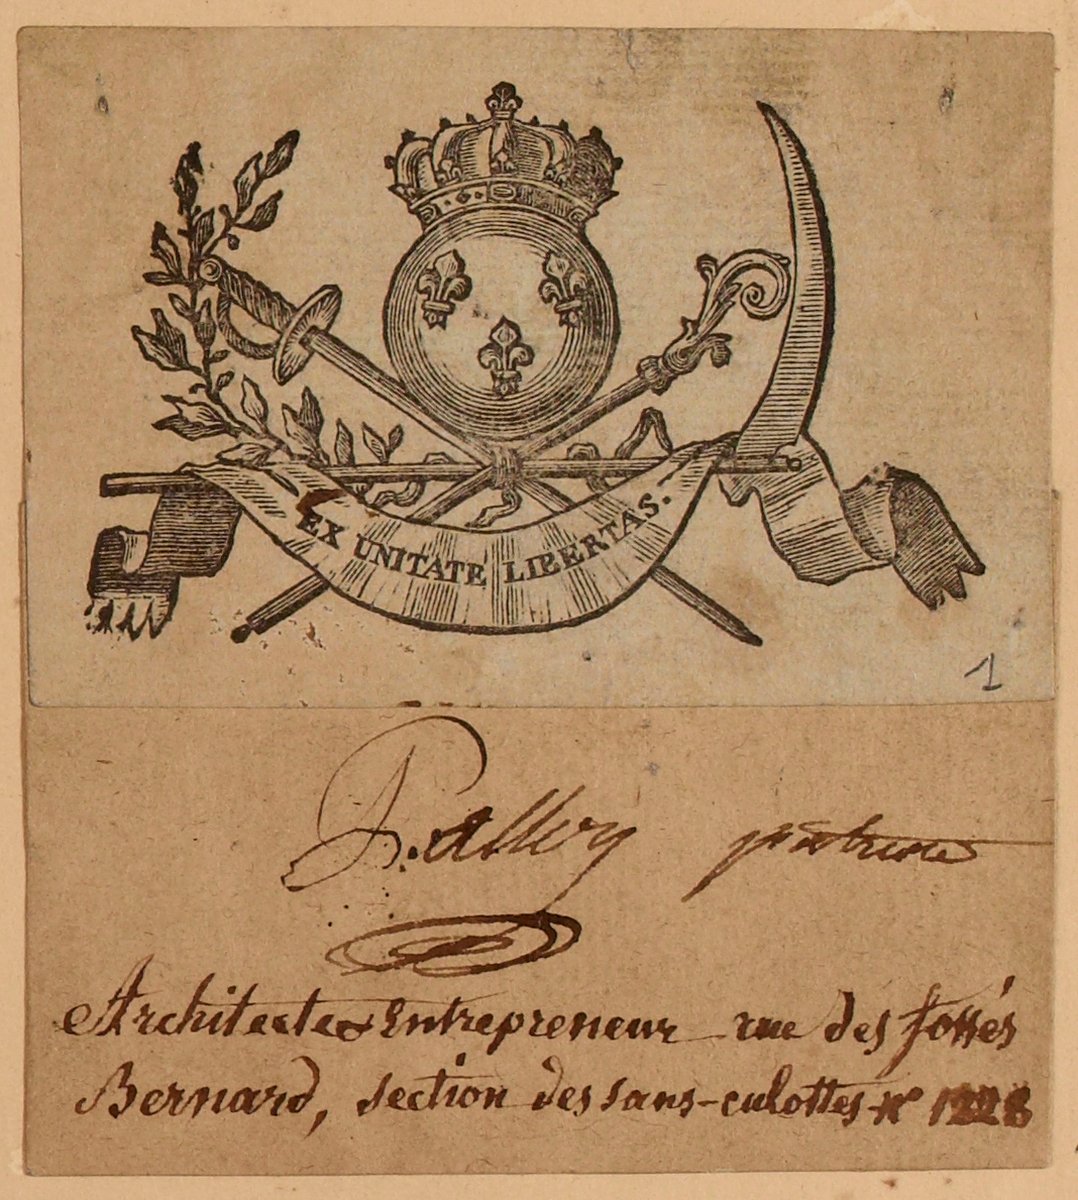 EX UNITATE LIBERTAS.
1
Palloy patriote
Architecte & Entrepreneur rue des fossés
Bernard, section des sans-culottes n° 1228